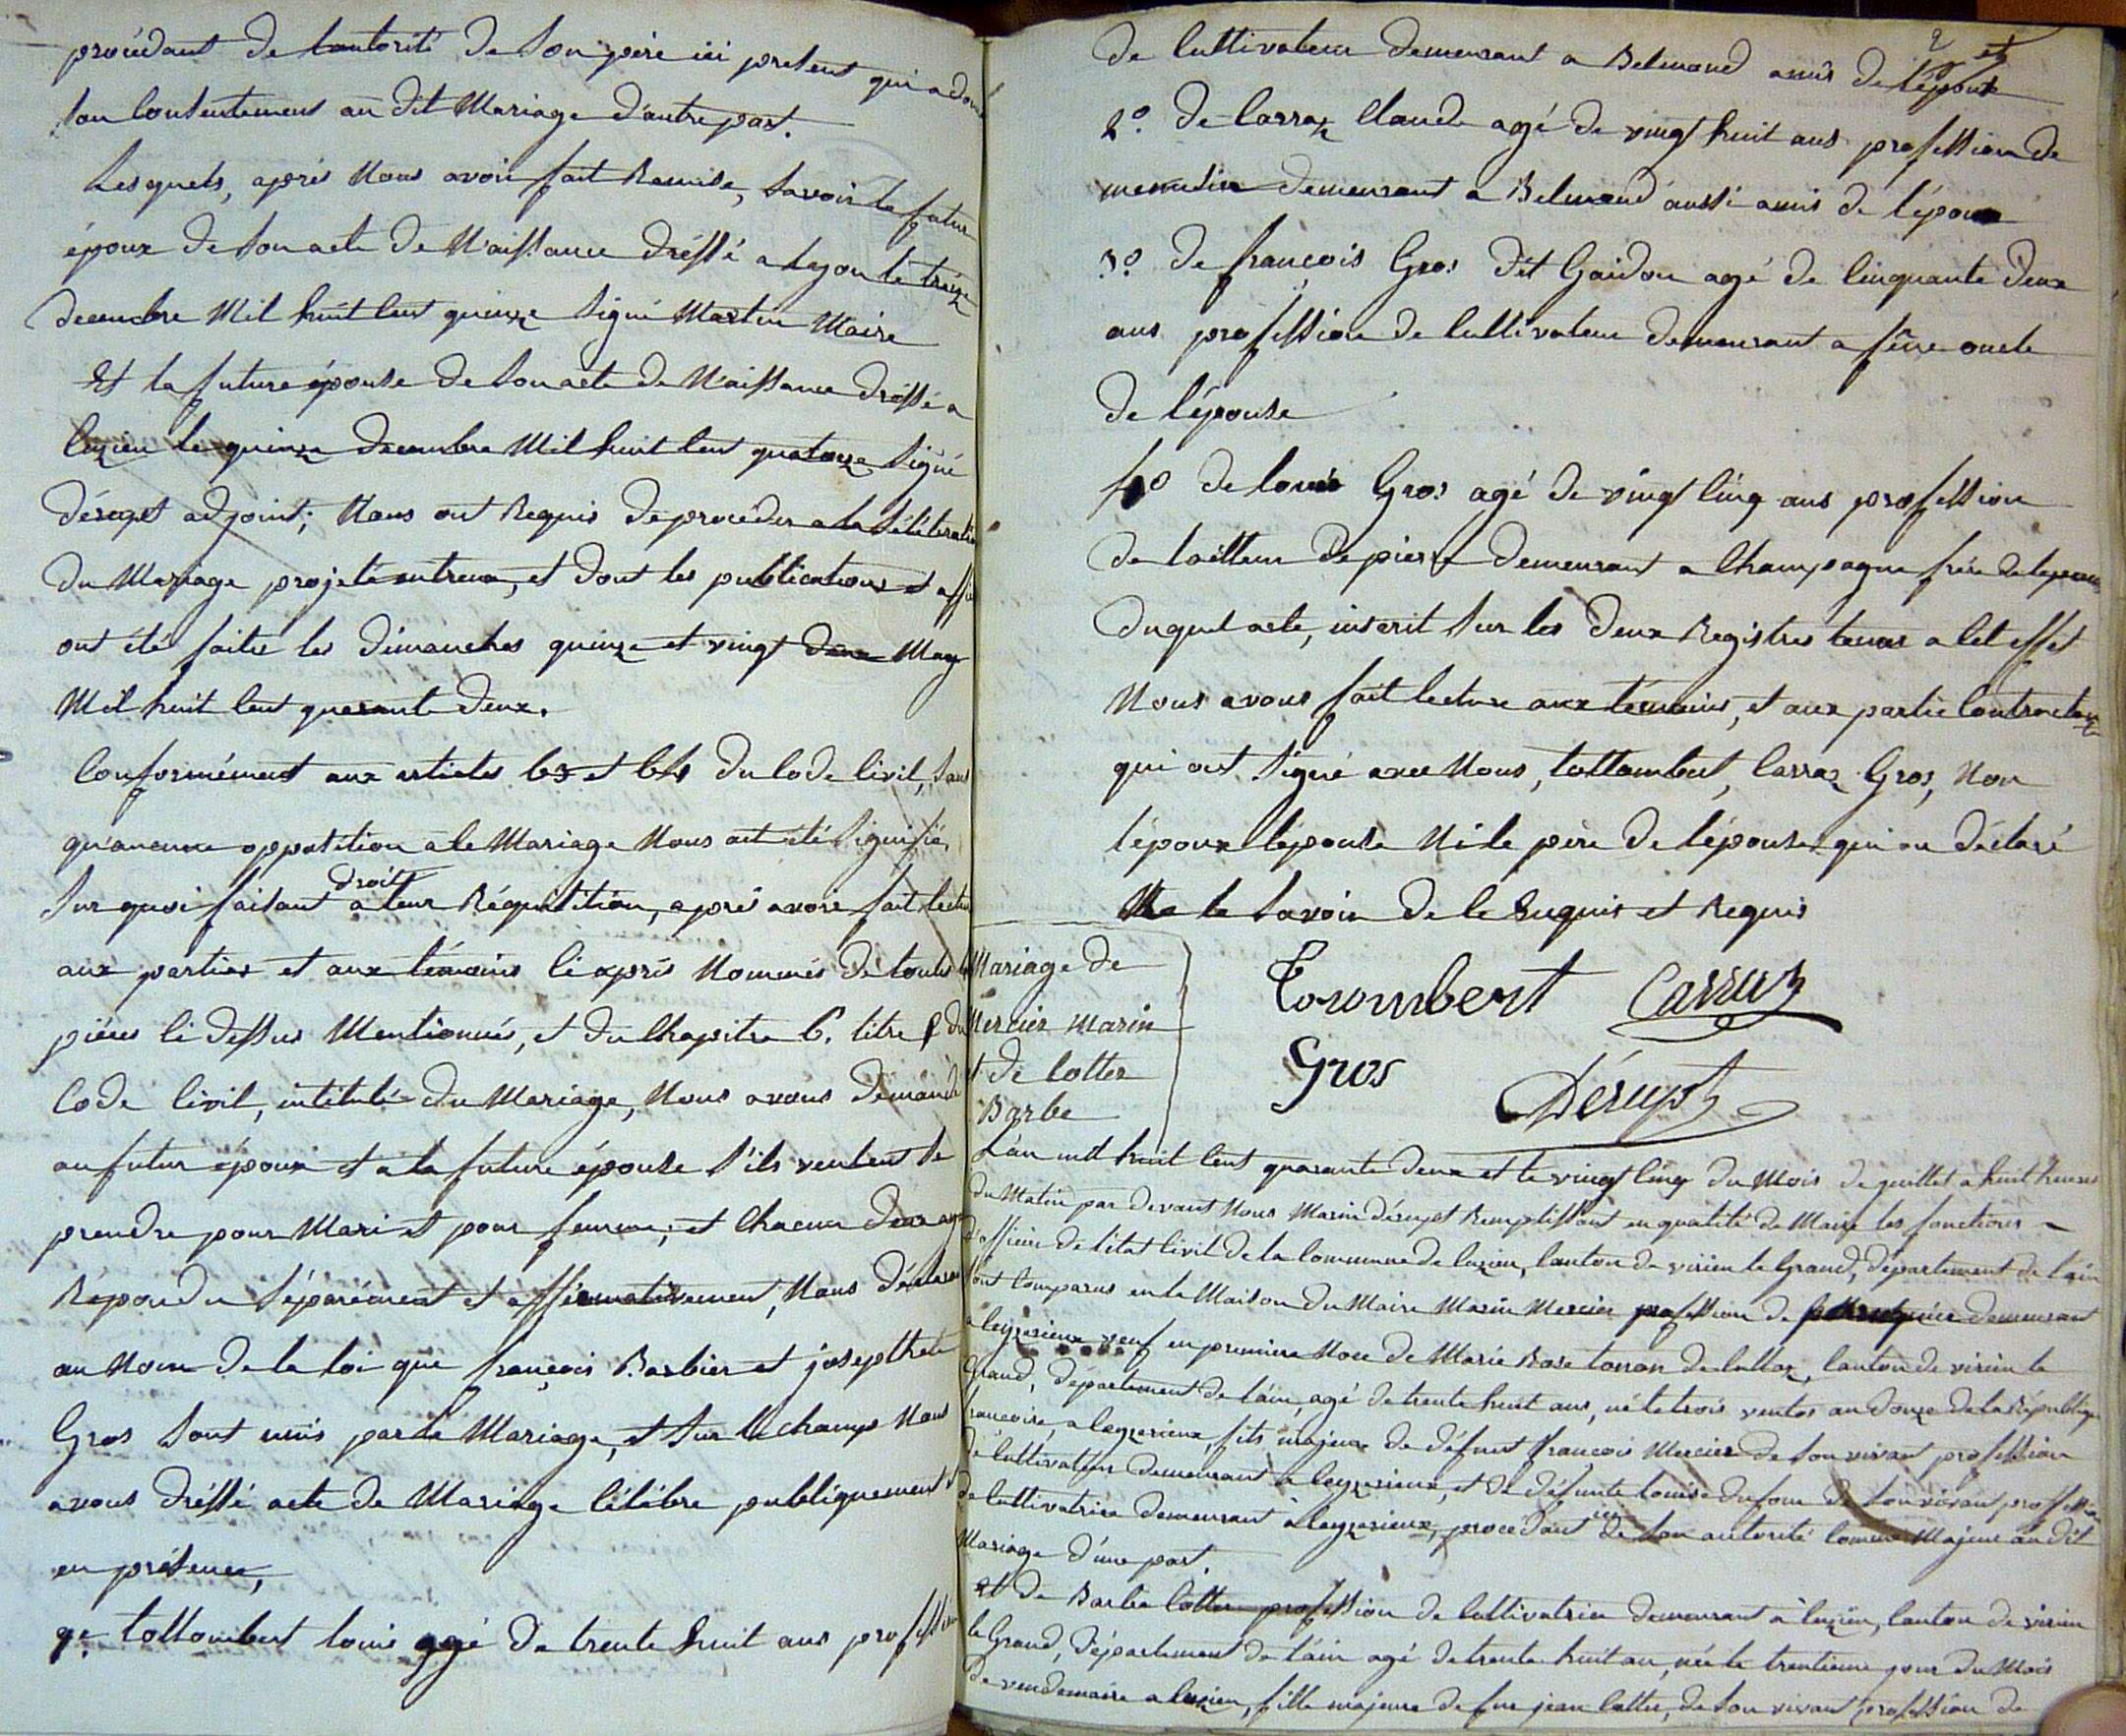 procédant de lautorité de Son père ici present qui a donné
Son Consentement au dit Mariage d'autre part.
Lesquels, après Nous avoir fait Remise, Savoir le futur
époux de Son acte de Naissance dréssé a le treize
decembre Mil huit Cent quinze Signé Martin Maire
Et la future épouse de Son acte de Naissance dréssé a
Cuzieu le quinze decembre Mil huit Cent quatorze Signé
dérupt adjoint; Nous ont Requis de procéder a la Célébration
du Mariage projeté entreux, et dont les publications et
ont été faites les dimanches quinze et vingt deux May
Mil huit Cent quarante deux.
Conformément aux articles 63 et 64 du Code Civil, Sans
qu'aucune opposition a le Mariage Nous ait été Signifié,
Sur quoi faisant droit a leur Réquisition, après avoir fait lecture
aux parties et aux témoins Ci après Nommés de toutes les
pièces Ci dessus Mentionnés, et du Chapitre 6. titre 5 du
Code Civil, intitulé du Mariage, Nous avons demandé
au futur époux et a la future épouse S'ils veulent Se
prendre pour Mari et pour femme; et Chacun deux ayant
Répondu Séparément et affirmativement, Nous déclarons
au Nom de la loi que françois Barbier et josepthete
Gros Sont unis par le Mariage, et Sur le champs Nous
avons dréssé acte de Mariage Célébre publiquement
en présence,
1º. tollombert louis agé de trente huit ans profession
2
de Cultivateur demeurant a Belmond amis de l'époux
2º. de Carraz Claude agé de vingt huit ans profession de
menusier demeurant a Belmond aussi amis de l'époux
3º de françois Gros dit Gaidon agé de Cinquante deux
ans profession de Cultivateur demeurant a oncle
de l'épouse
4º de louis Gros agé de vingt Cinq ans profession
de tailleur de pierre demeurant a Champagne frère de lepouse
duquel acte, inscrit Sur les deux Registres tenus a Cet effet
Nous avons fait lecture aux témoins, et aux partie Contractante
qui ont Signé avec Nous, tollombert, Carraz Gros, Non
l'époux l'épouse Ni le père de l'épouse qui on déclaré
Ne le Savoir de le Enquis et Requis
Mariage de
Mercier Marin
et de Cottez
Barbe
Torombert Carraz
Gros
Dérupt
L'an mil huit Cent quarante deux et le vingt Cinq du Mois de juillet a huit heures
du Matin par devant Nous Marin dérupt Remplissant en qualité de Maire les fonctions
d'officier de l'état Civil de la Commune de Cuzieu, Canton de virieu le Grand, département de l'ain
Sont Comparus en la Maison du Maire Marin Mercier profession de demeurant
a Ceyzerieux veuf en premiere Noce de Marie Rose de Culloz, Canton de virieu le
Grand, département de l'ain, agé de trente huit ans, né le trois ventos an douze de la République
francaise, a Ceyzerieux, fils majeur de défunt françois Mercier de Son vivant profession
de Cultivateur demeurant a Ceyzerieux, et de défunte louise dufour de Son vivant profession
de Cultivatrice demeurant à Ceyzerieux, procédant ici de Son autorité Comme Majeur au dit
Mariage d'une part.
Et de Barbe Cottez profession de Cultivatrice demeurant a Cuzieu, Canton de virieu
le Grand, département de l'ain agé de trente huit an, née le trentieme jour du Mois
de vendemaire a Cuzieu, fille majeure de feu jean Cottez, de Son vivant profession de